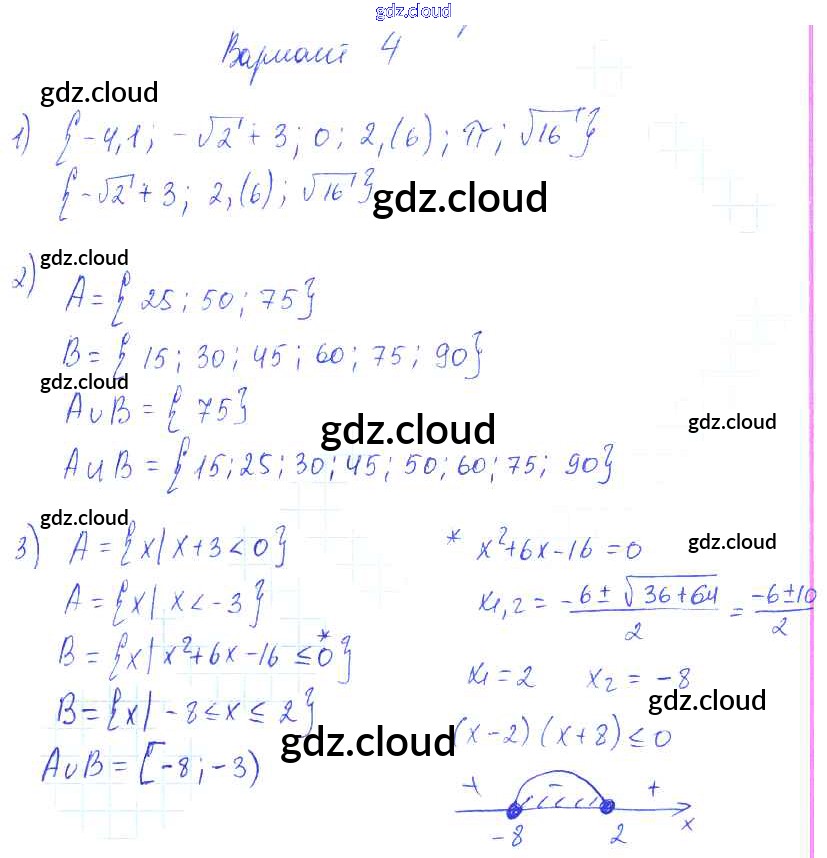 gdz.cloud
Вариант 4
gdz.cloud
1) {-4,1; -√2+3; 0; 2,(6); π; √16}
{-√2+3; 2,(6); √16}
gdz.cloud
gdz.cloud
2) A={25; 50; 75}
B={15; 30; 45; 60; 75; 90}
gdz.cloud
A∪B={75}
gdz.cloud
gdz.cloud
A∪B={15; 25; 30; 45; 50; 60; 75; 90}
gdz.cloud
3) A={x| x+3<0}
A={x| x<-3}
B={x| x²+6x-16≤0*}
B={x| -8≤x≤2}
A∪B=[-8; -3)
gdz.cloud
* x²+6x-16=0
gdz.cloud
x₁,₂ = (-6±√36+64)/2 = (-6±10)/2
x₁=2 x₂=-8
gdz.cloud
(x-2)(x+8)≤0
+ - +
-8 2 x